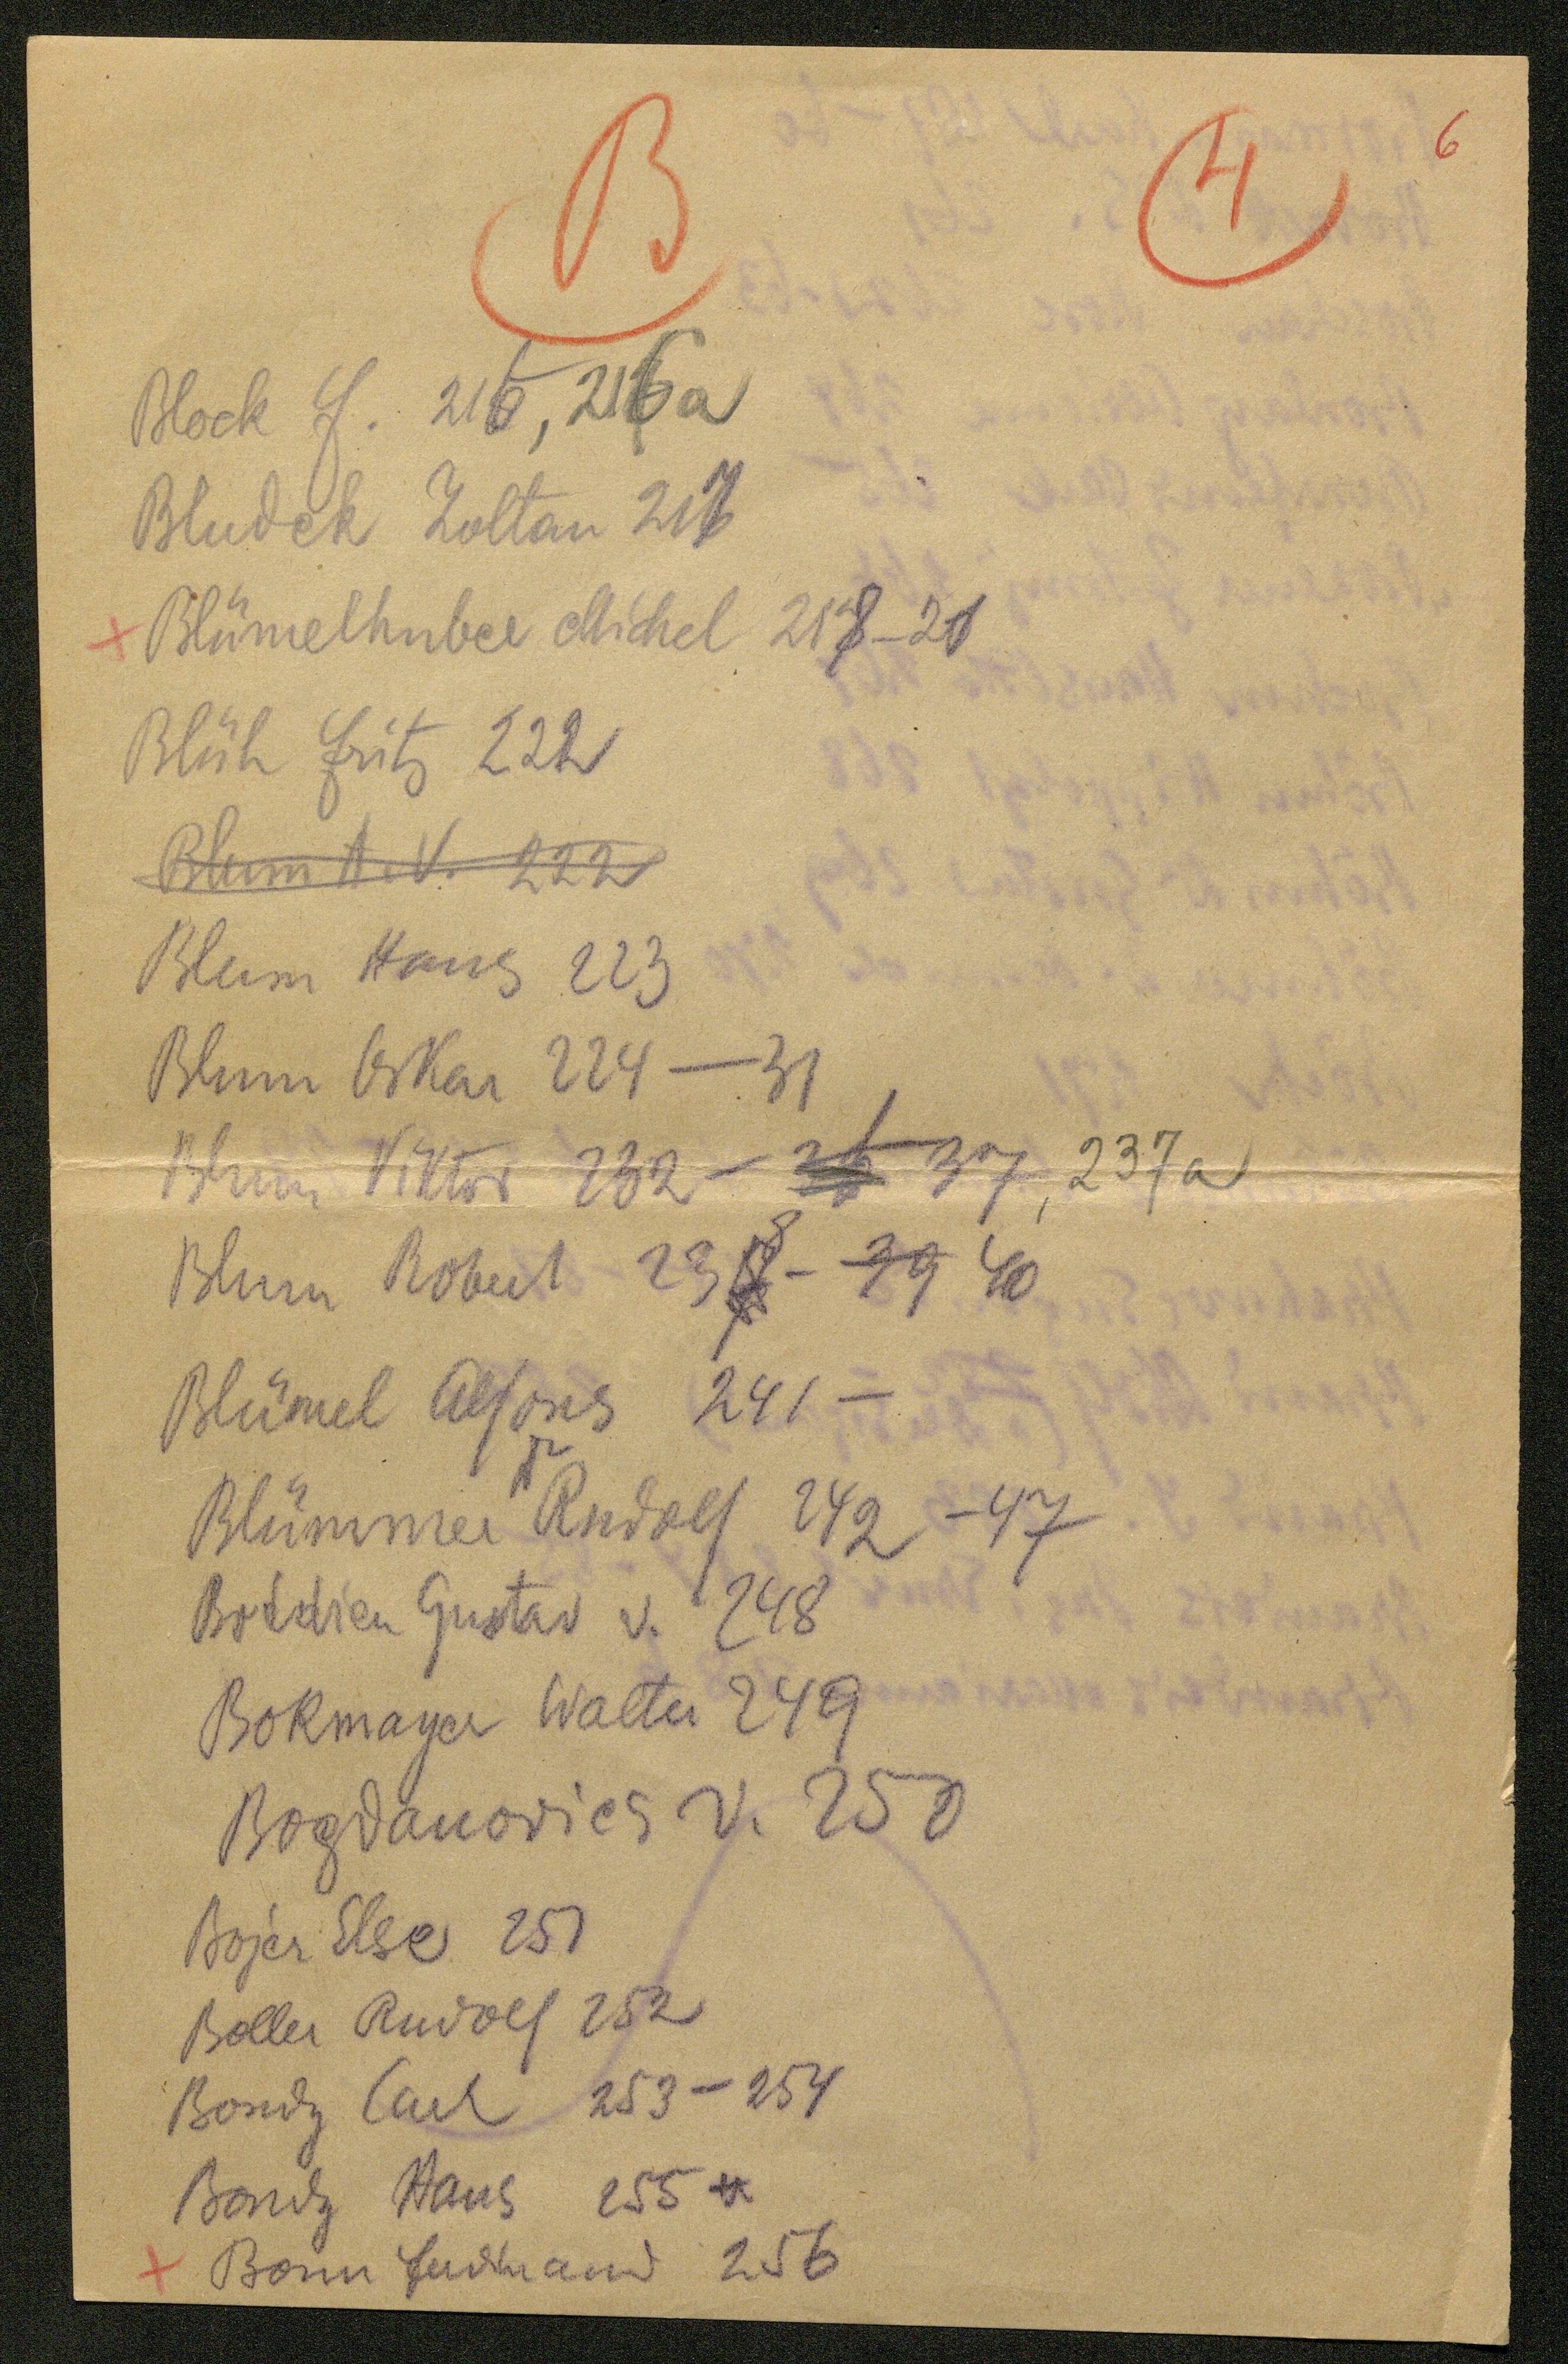 B 4 6
Block f. 216, 216a
Bludek Zoltan 217
+ Blümelhuber Michel 218-21
Blüh Fritz 222
Blum A.V. 222
Blum Hans 223
Blum Oskar 224-31
Blum Viktor 232- 36 37, 237a
Blum Robert 238- 39 40
Blümel Alfons 241-
Blümner Dr Rudolf 242-47
Boddien Gustav v. 248
Bokmayer Walter 249
Bogdanovics v. 250
Bojer Else 251
Boller Rudolf 252
Bondy Carl 253-254
Bondy Hans 255
+ Bonn Ferdinand 256